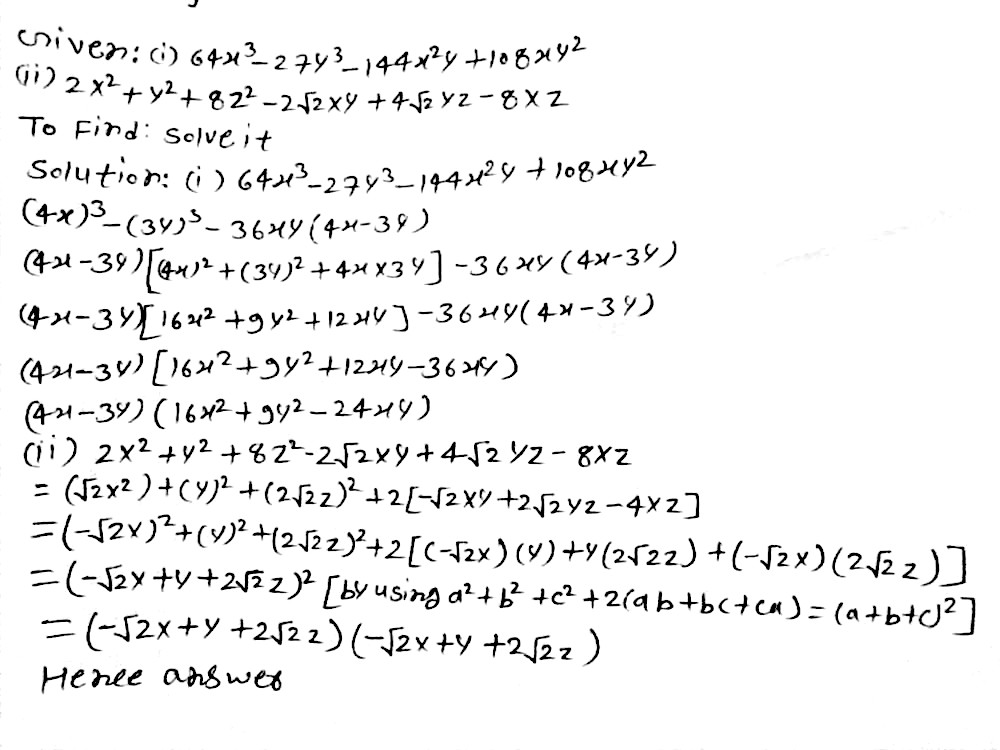 Given: (i) 64x³-27y³-144x²y+108xy²
(ii) 2x²+y²+8z²-2√2xy+4√2yz-8xz
To Find: Solve it
Solution: (i) 64x³-27y³-144x²y+108xy²
(4x)³-(3y)³-36xy(4x-3y)
(4x-3y)[(4x)²+(3y)²+4x×3y]-36xy(4x-3y)
(4x-3y)[16x²+9y²+12xy]-36xy(4x-3y)
(4x-3y)[16x²+9y²+12xy-36xy)
(4x-3y)(16x²+9y²-24xy)
(ii) 2x²+y²+8z²-2√2xy+4√2yz-8xz
=(√2x²)+(y)²+(2√2z)²+2[-√2xy+2√2yz-4xz]
=(-√2x)²+(y)²+(2√2z)²+2[(-√2x)(y)+y(2√2z)+(-√2x)(2√2z)]
=(-√2x+y+2√2z)² [by using a²+b²+c²+2(ab+bc+ca)=(a+b+c)²]
=(-√2x+y+2√2z)(-√2x+y+2√2z)
Hence answer